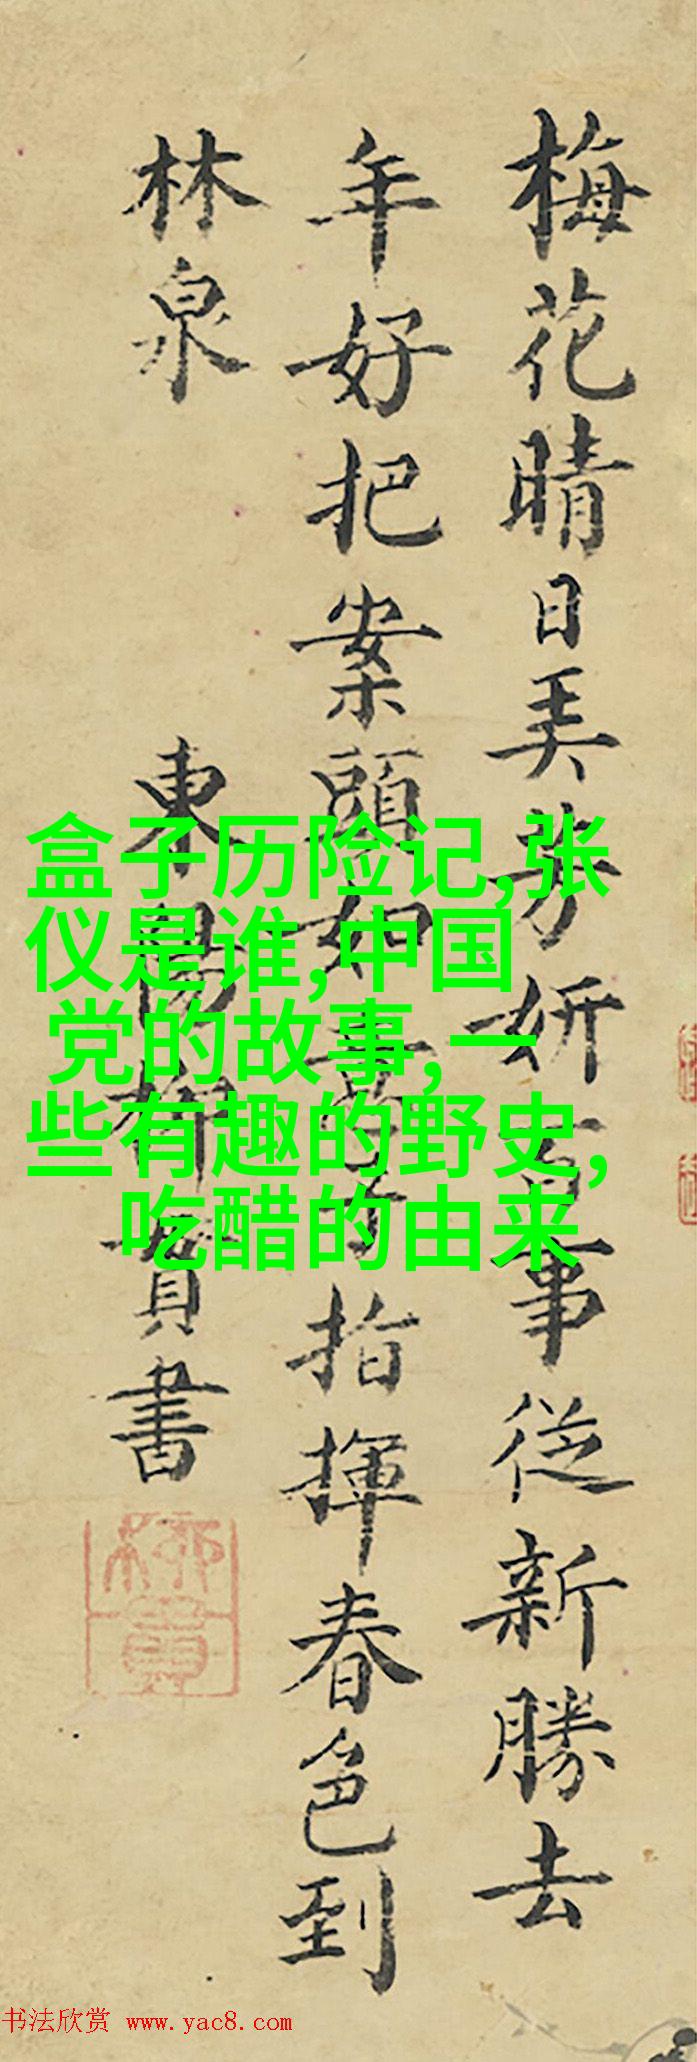 梅花晴日美芳妍百事從新勝去
年好把案頭如意子指揮春色到
林泉
東陽柳貫書
柳貫
盒子历险记,张
仪是谁,中国
党的故事,一
些有趣的野史,
吃醋的由来
书法欣赏 www.yac8.com